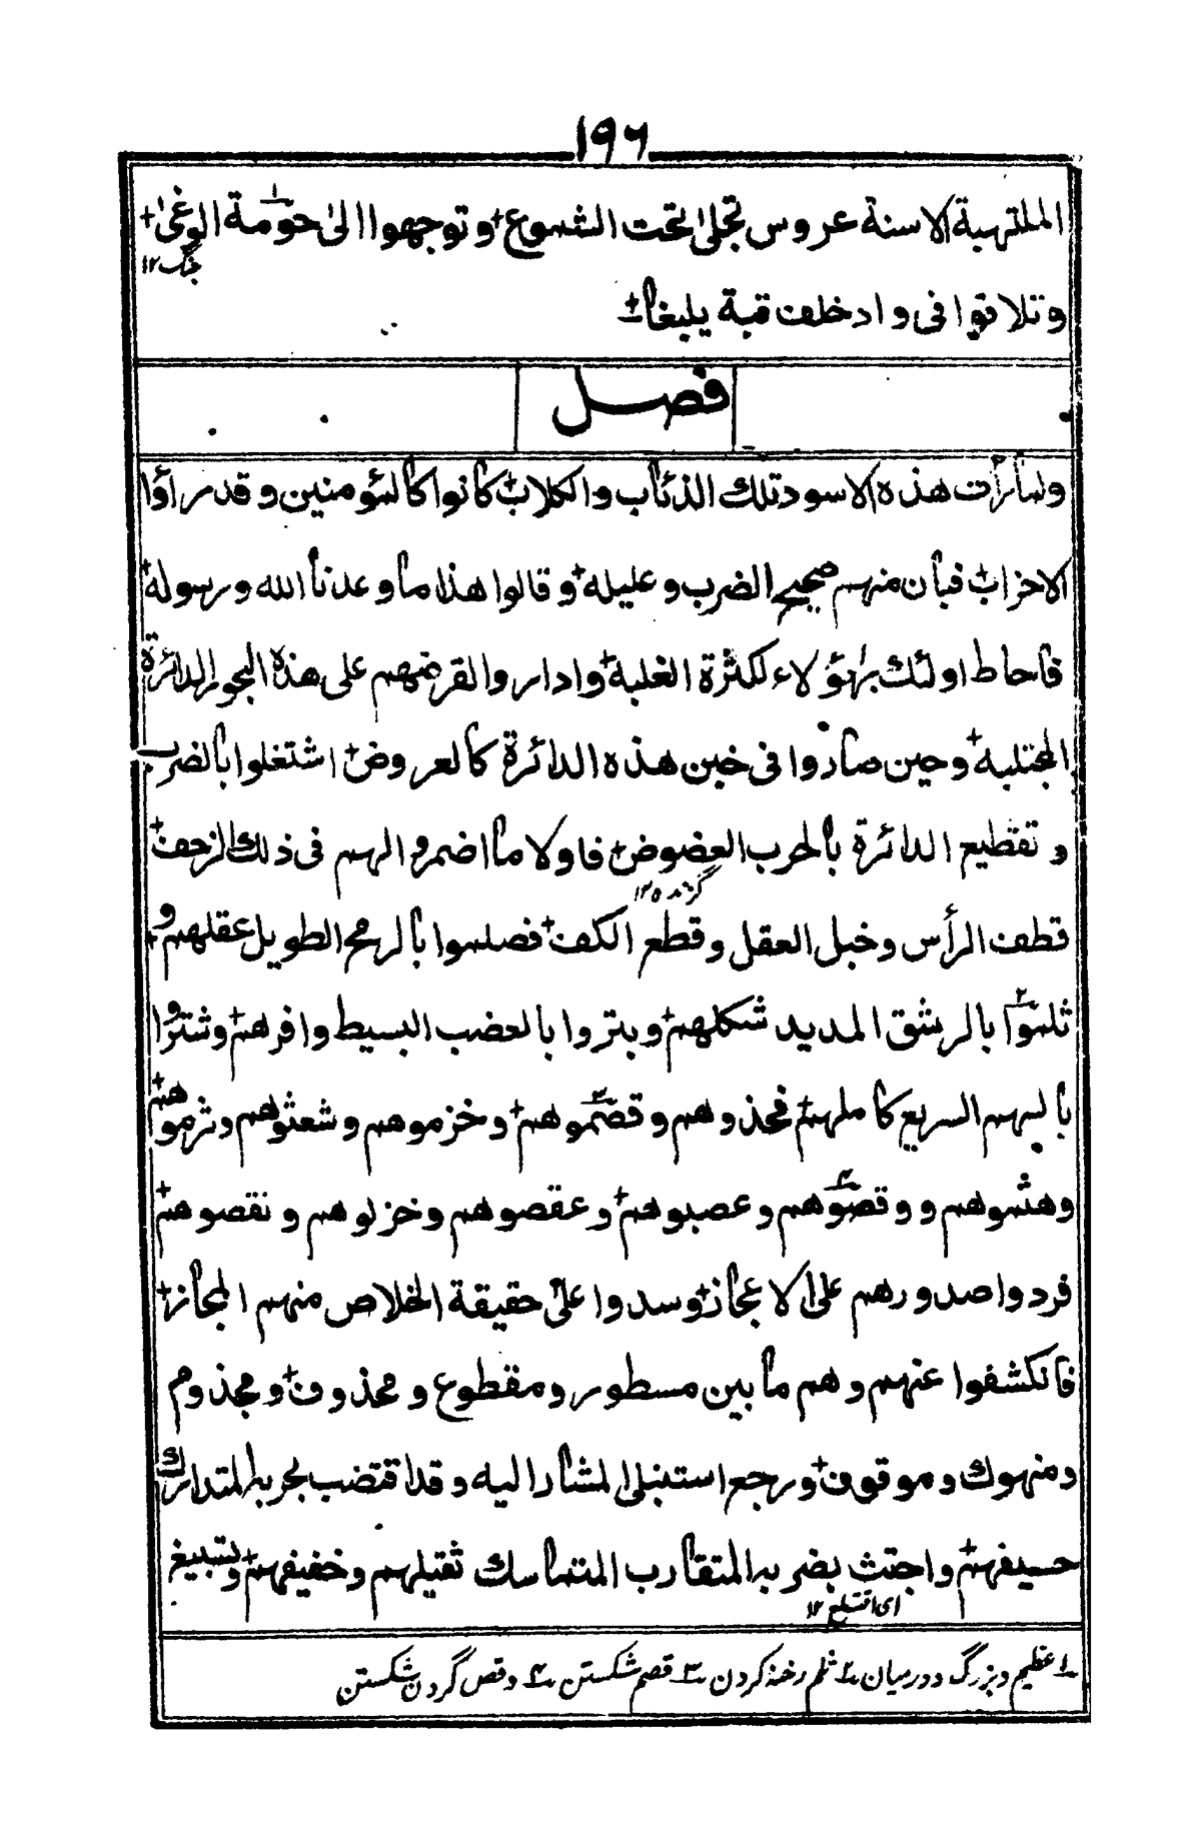 ١٩٦
الملتهبة الاسنة عروس تجلى تحت الشموع + و توجهوا الى حومة الوغى +
جنگ ١٢
و تلاقوا فى واد خلف قبة يلبغا +
فصل
ولما رأت هذه الاسود تلك الذئاب والكلاب كانوا كالمؤمنين و قد رأوا
الاحزاب فبان منهم صحيح الضرب و عليله + و قالوا هذا ما وعدنا الله و رسوله +
فاحاط اولئك بهؤلاء لكثرة الغلبة + واداروا القرضهم على هذه البحور الدائرة
المجتلبة + وحين صاروا فى خبن هذه الدائرة كالعروض + اشتغلوا بالضرب
و تقطيع الدائرة بالحرب العضوض + فاولا ما اضمروا لهم فى ذلك الزحف +
گزنده ١٢
قطف الرأس وخبل العقل وقطع الكف + فصلموا بالرمح الطويل عقلهم و +
ثلموا بالرشق المديد شكلهم + وبتروا بالعضب البسيط وافرهم + وشتروا
بالسهم السريع كاملهم + فحذوهم وقصموهم + وخزموهم وشعثوهم وثرموهم +
وهشموهم و وقصوهم وعصبوهم + وعقصوهم وخزلوهم ونقصوهم +
فردوا صدورهم على الاعجاز + وسدوا على حقيقة الخلاص منهم المجاز +
فانكشفوا عنهم وهم ما بين مسطور ومقطوع ومحذوف + ومجذوم
ومنهوك وموقوف + ورجع استنبلى المشار اليه وقد اقتضب بحربه المتدارك
حسيفهم + واجتث بضربه المتقارب المتماسك ثقيلهم وخفيفهم + وتسبيغ
اى اقتلع ١٢
١ عظيم و بزرگ و درميان ٢ ثلم رخنه كردن ٣ قصم شكستن ٤ وقص گردن شكستن